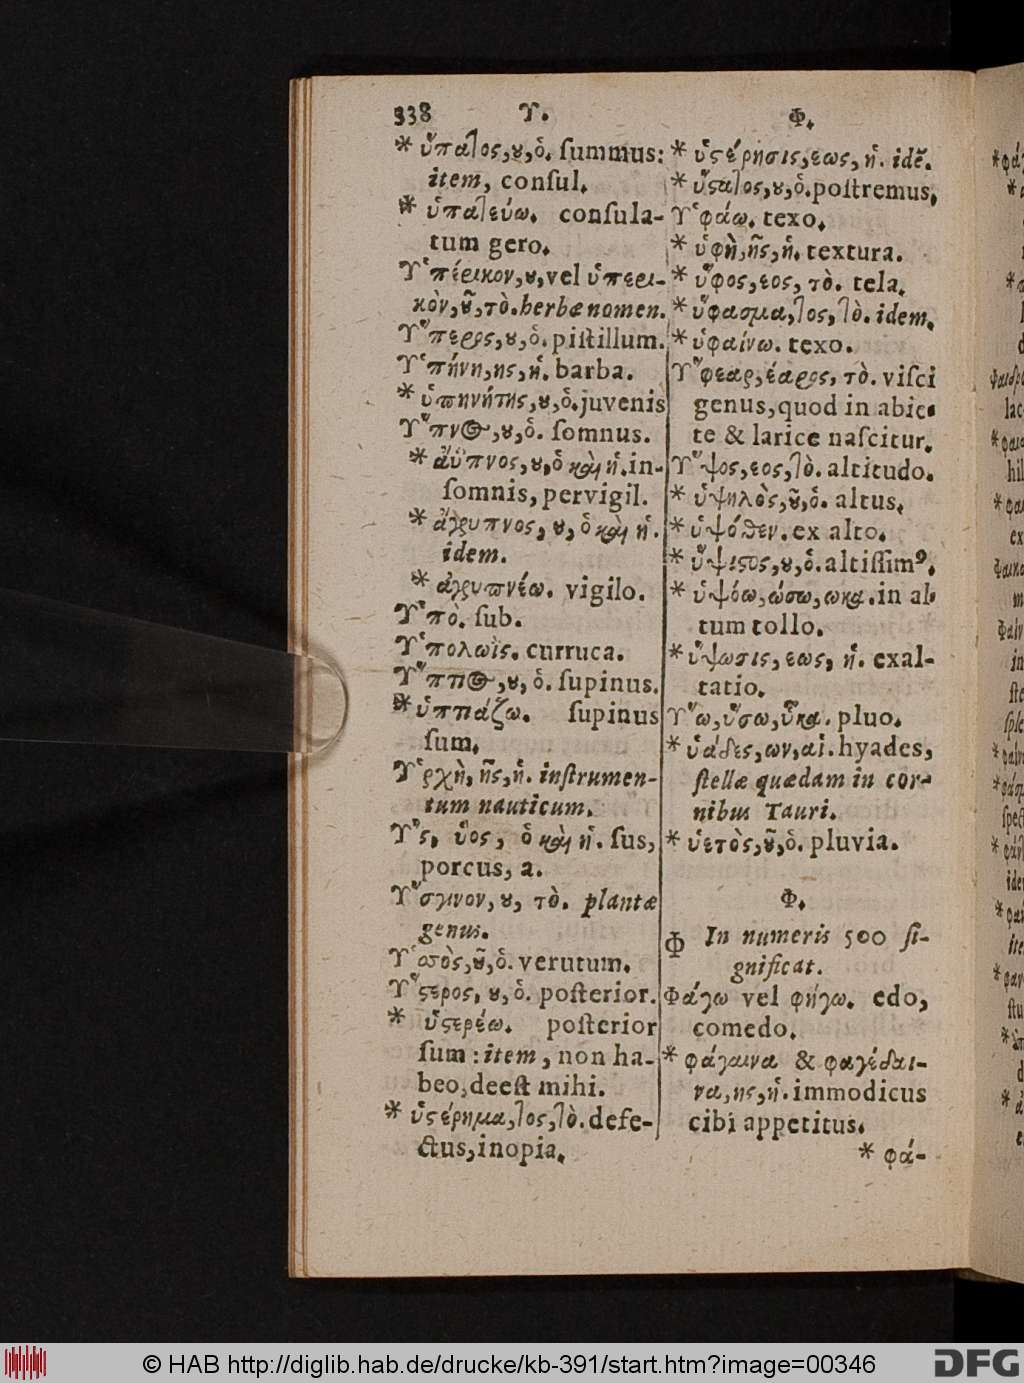 338 ϒ.
* ὕπατος,ȣ,ὁ. ſummus:
item, conſul.
* ὑπατεύω. conſula-
tum gero.
ϒ̔πέρικον,ȣ,vel ὑπερι-
κὸν,ȣ͂,τὸ. herbæ nomen.
ϒ̔́περος,ȣ,ὁ. piſtillum.
ϒ̔πήνη,ης,ἡ. barba.
* ὑπηνήτης,ȣ,ὁ. juvenis
ϒ̔́πνος,ȣ,ὁ. ſomnus.
* ἄϋπνος,ȣ,ὁ καὶ ἡ. in-
ſomnis, pervigil.
* ἄγρυπνος, ȣ, ὁ καὶ ἡ.
idem.
* ἀγρυπνέω. vigilo.
ϒ̔πὸ. ſub.
ϒ̔πολωῒς. curruca.
ϒ̔́πτιος,ȣ, ὁ. ſupinus.
* ὑπτιάζω. ſupinus
ſum.
ϒ̔ρχὴ, ῆς,ἡ. inſtrumen-
tum nauticum.
ϒ̔͂ς, ὑὸς, ὁ καὶ ἡ. ſus,
porcus, a.
ϒ̔́σγινον, ȣ, τὸ. plantæ
genus.
ϒ̔σσὸς,ȣ͂,ὁ. verutum.
ϒ̔́ςερος, ȣ, ὁ. poſterior.
* ὑςερέω. poſterior
ſum : item, non ha-
beo, deeſt mihi.
* ὑςέρημα,τος,τὸ. defe-
ctus, inopia.
Φ.
* ὑςέρησις,εως, ἡ. idẽ.
* ὕςατος,ȣ,ὁ. poſtremus.
ϒ̔φάω. texo.
* ὑφὴ,ῆς,ἡ. textura.
* ὕφος,εος, τὸ. tela.
* ὕφασμα,τος,τὸ. idem.
* ὑφαίνω. texo.
ϒ̔́φεαρ,έαρος, τὸ. viſci
genus, quod in abie-
te & larice naſcitur.
ϒ̔́ψος,εος,τὸ. altitudo.
* ὑψηλὸς,ȣ͂,ὁ. altus.
* ὑψόθεν. ex alto.
* ὕψιςος,ȣ,ὁ. altiſſimꝰ.
* ὑψόω,ώσω,ωκα. in al-
tum tollo.
* ὕψωσις, εως, ἡ. exal-
tatio.
ϒ̔́ω,ὕσω,ὗκα. pluo.
* ὑάδες,ων,αἱ. hyades,
ſtellæ quædam in cor-
nibus Tauri.
* ὑετὸς,ȣ͂,ὁ. pluvia.
Φ.
Φ In numeris 500 ſi-
gnificat.
Φάγω vel φήγω. edo,
comedo.
* φάγαινα & φαγέδαι-
να,ης,ἡ. immodicus
cibi appetitus.
* φά-
© HAB http://diglib.hab.de/drucke/kb-391/start.htm?image=00346
DFG